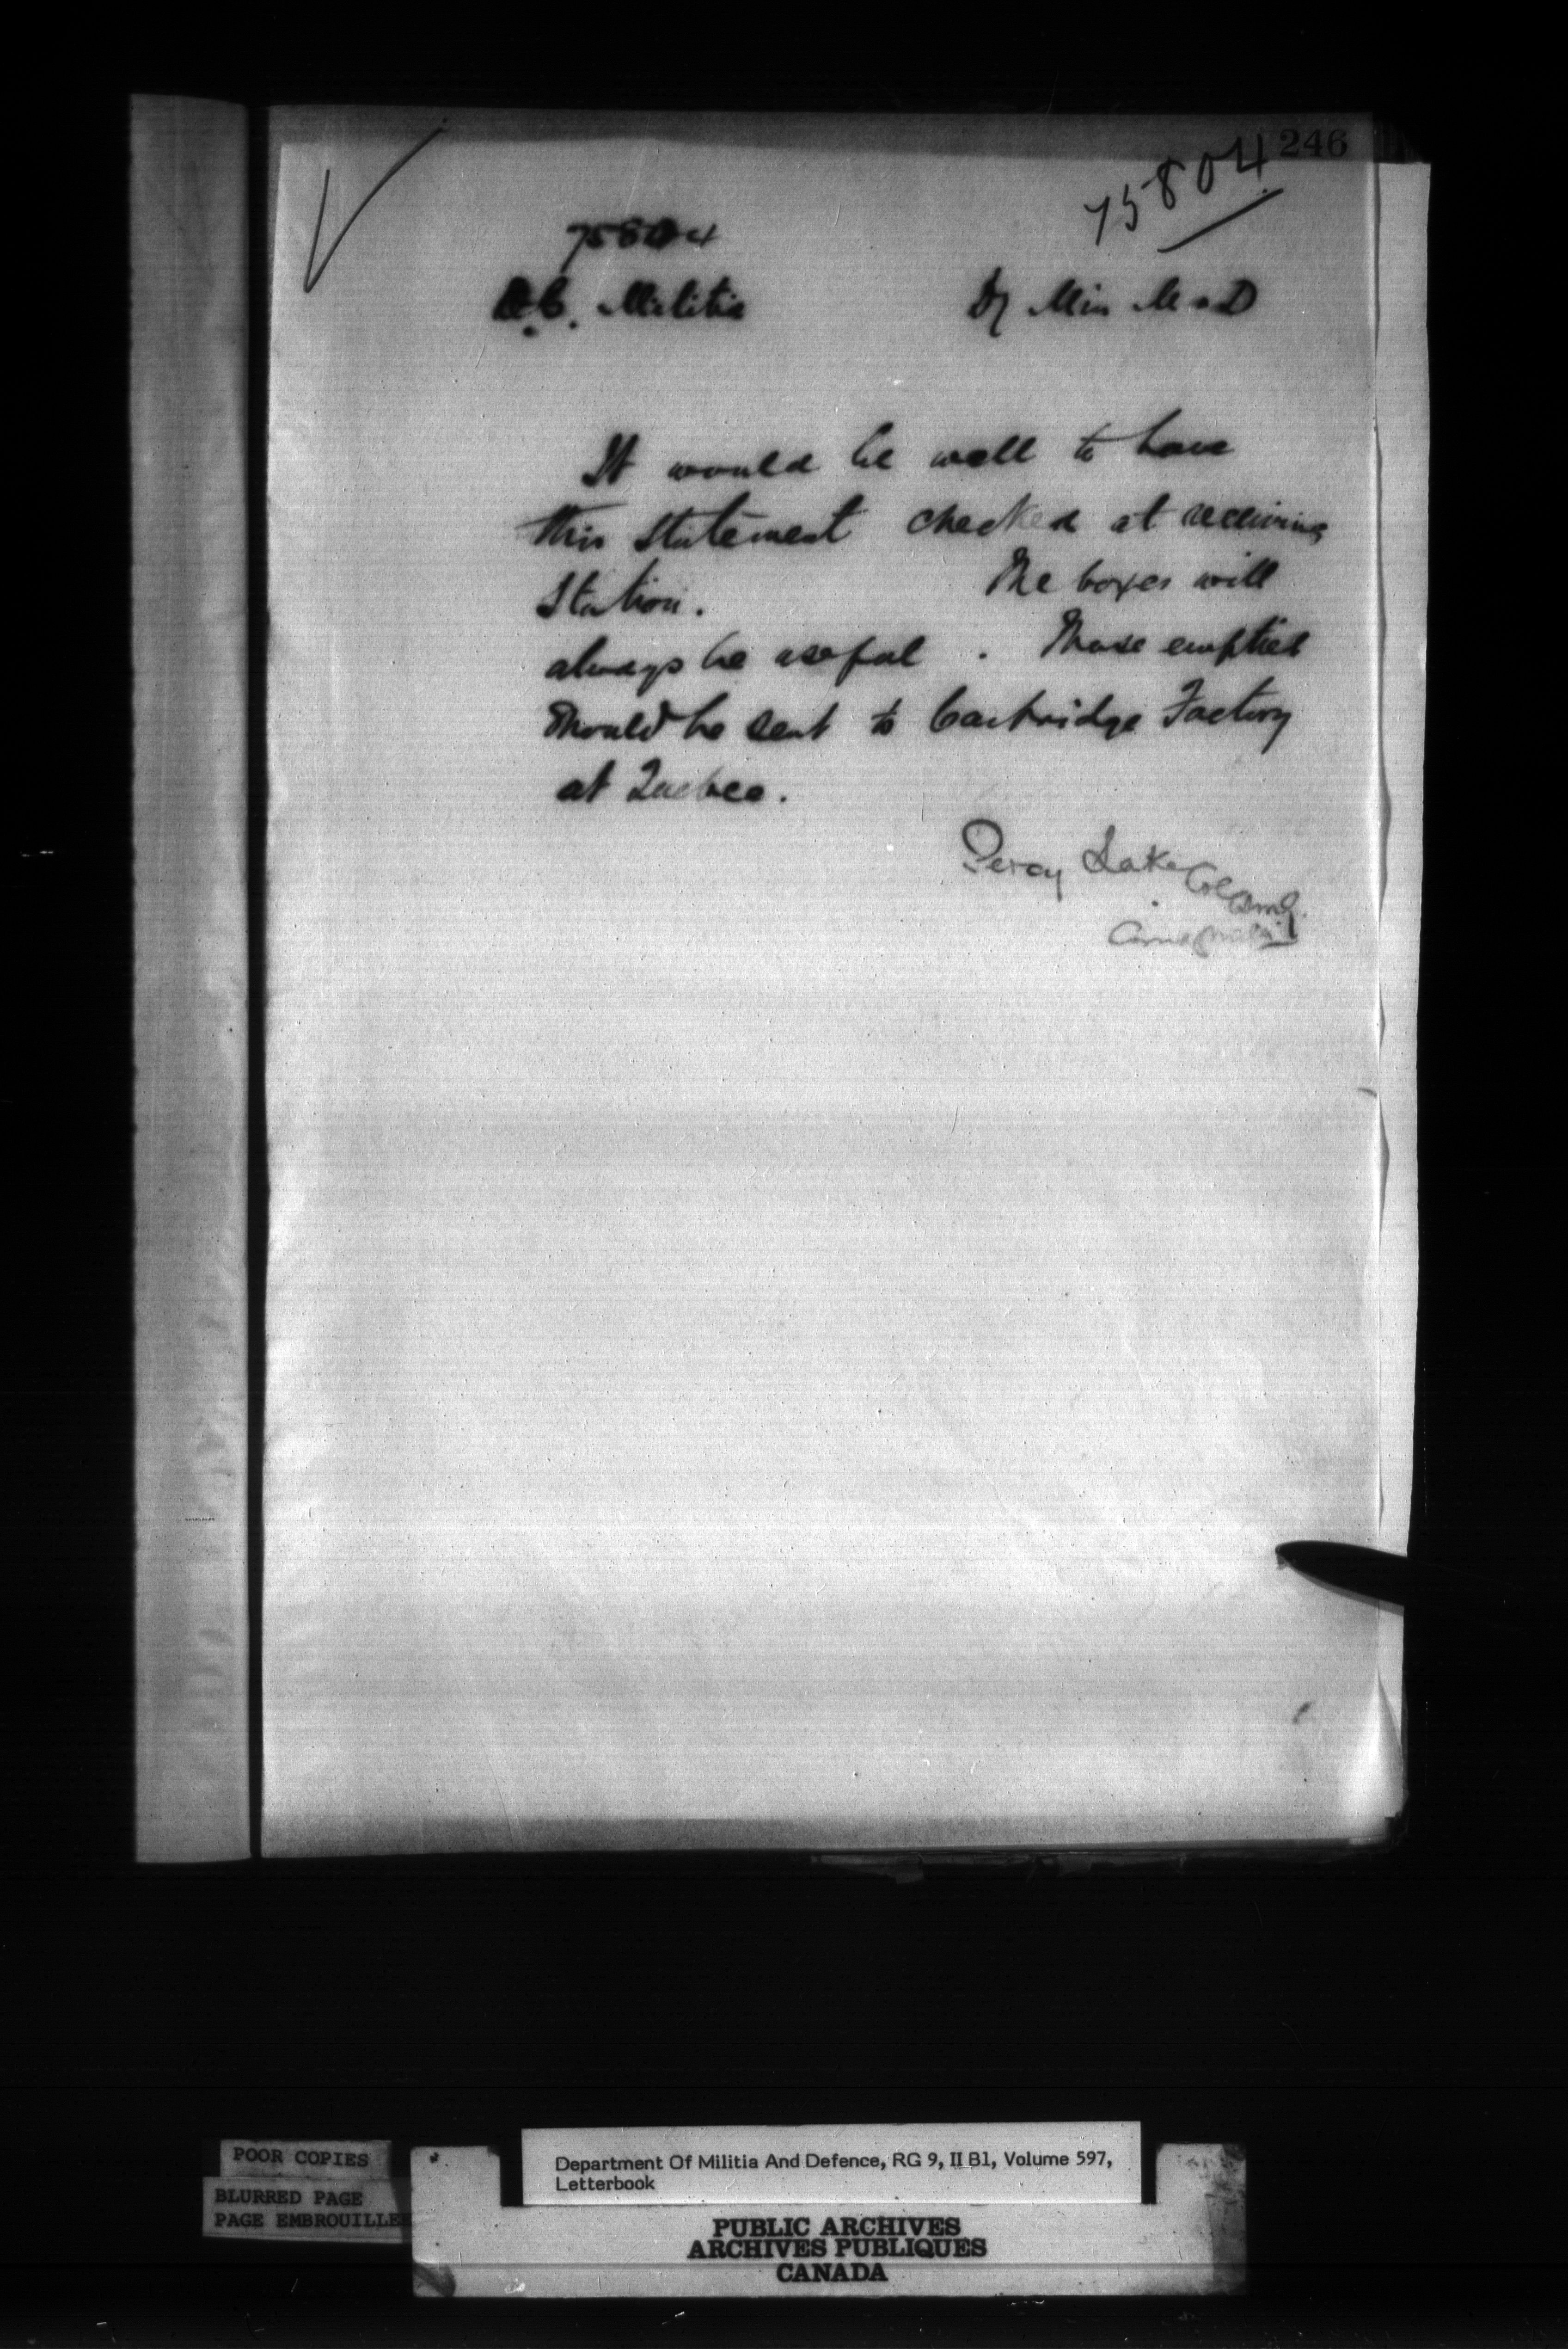 246
75804
75804
D.C. Militia
Dy Min M & D
It would be well to have
this statement checked at receiving
Station. The boxes will
always be useful. Those emptied
should be sent to Cartridge Factory
at Quebec.
Percy Lake Col
POOR COPIES
BLURRED PAGE
PAGE EMBROUILLEE
Department Of Militia And Defence, RG 9, II B1, Volume 597,
Letterbook
PUBLIC ARCHIVES
ARCHIVES PUBLIQUES
CANADA